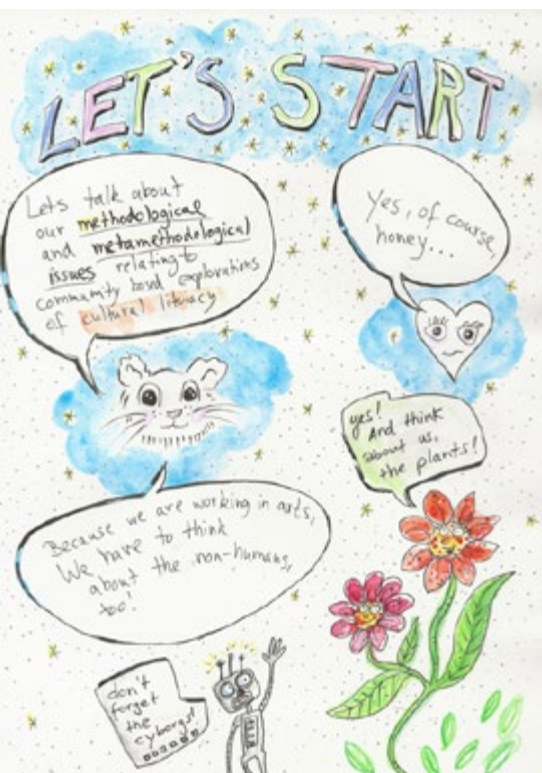 LET'S START
Lets talk about
our methodological
and metamethodological
issues relating to
community based explorations
of cultural literacy
Yes, of course,
honey...
yes!
And think
about us,
the plants!
Because we are working in arts,
We have to think
about the non-humans,
too!
don't
forget
the
cyborgs!